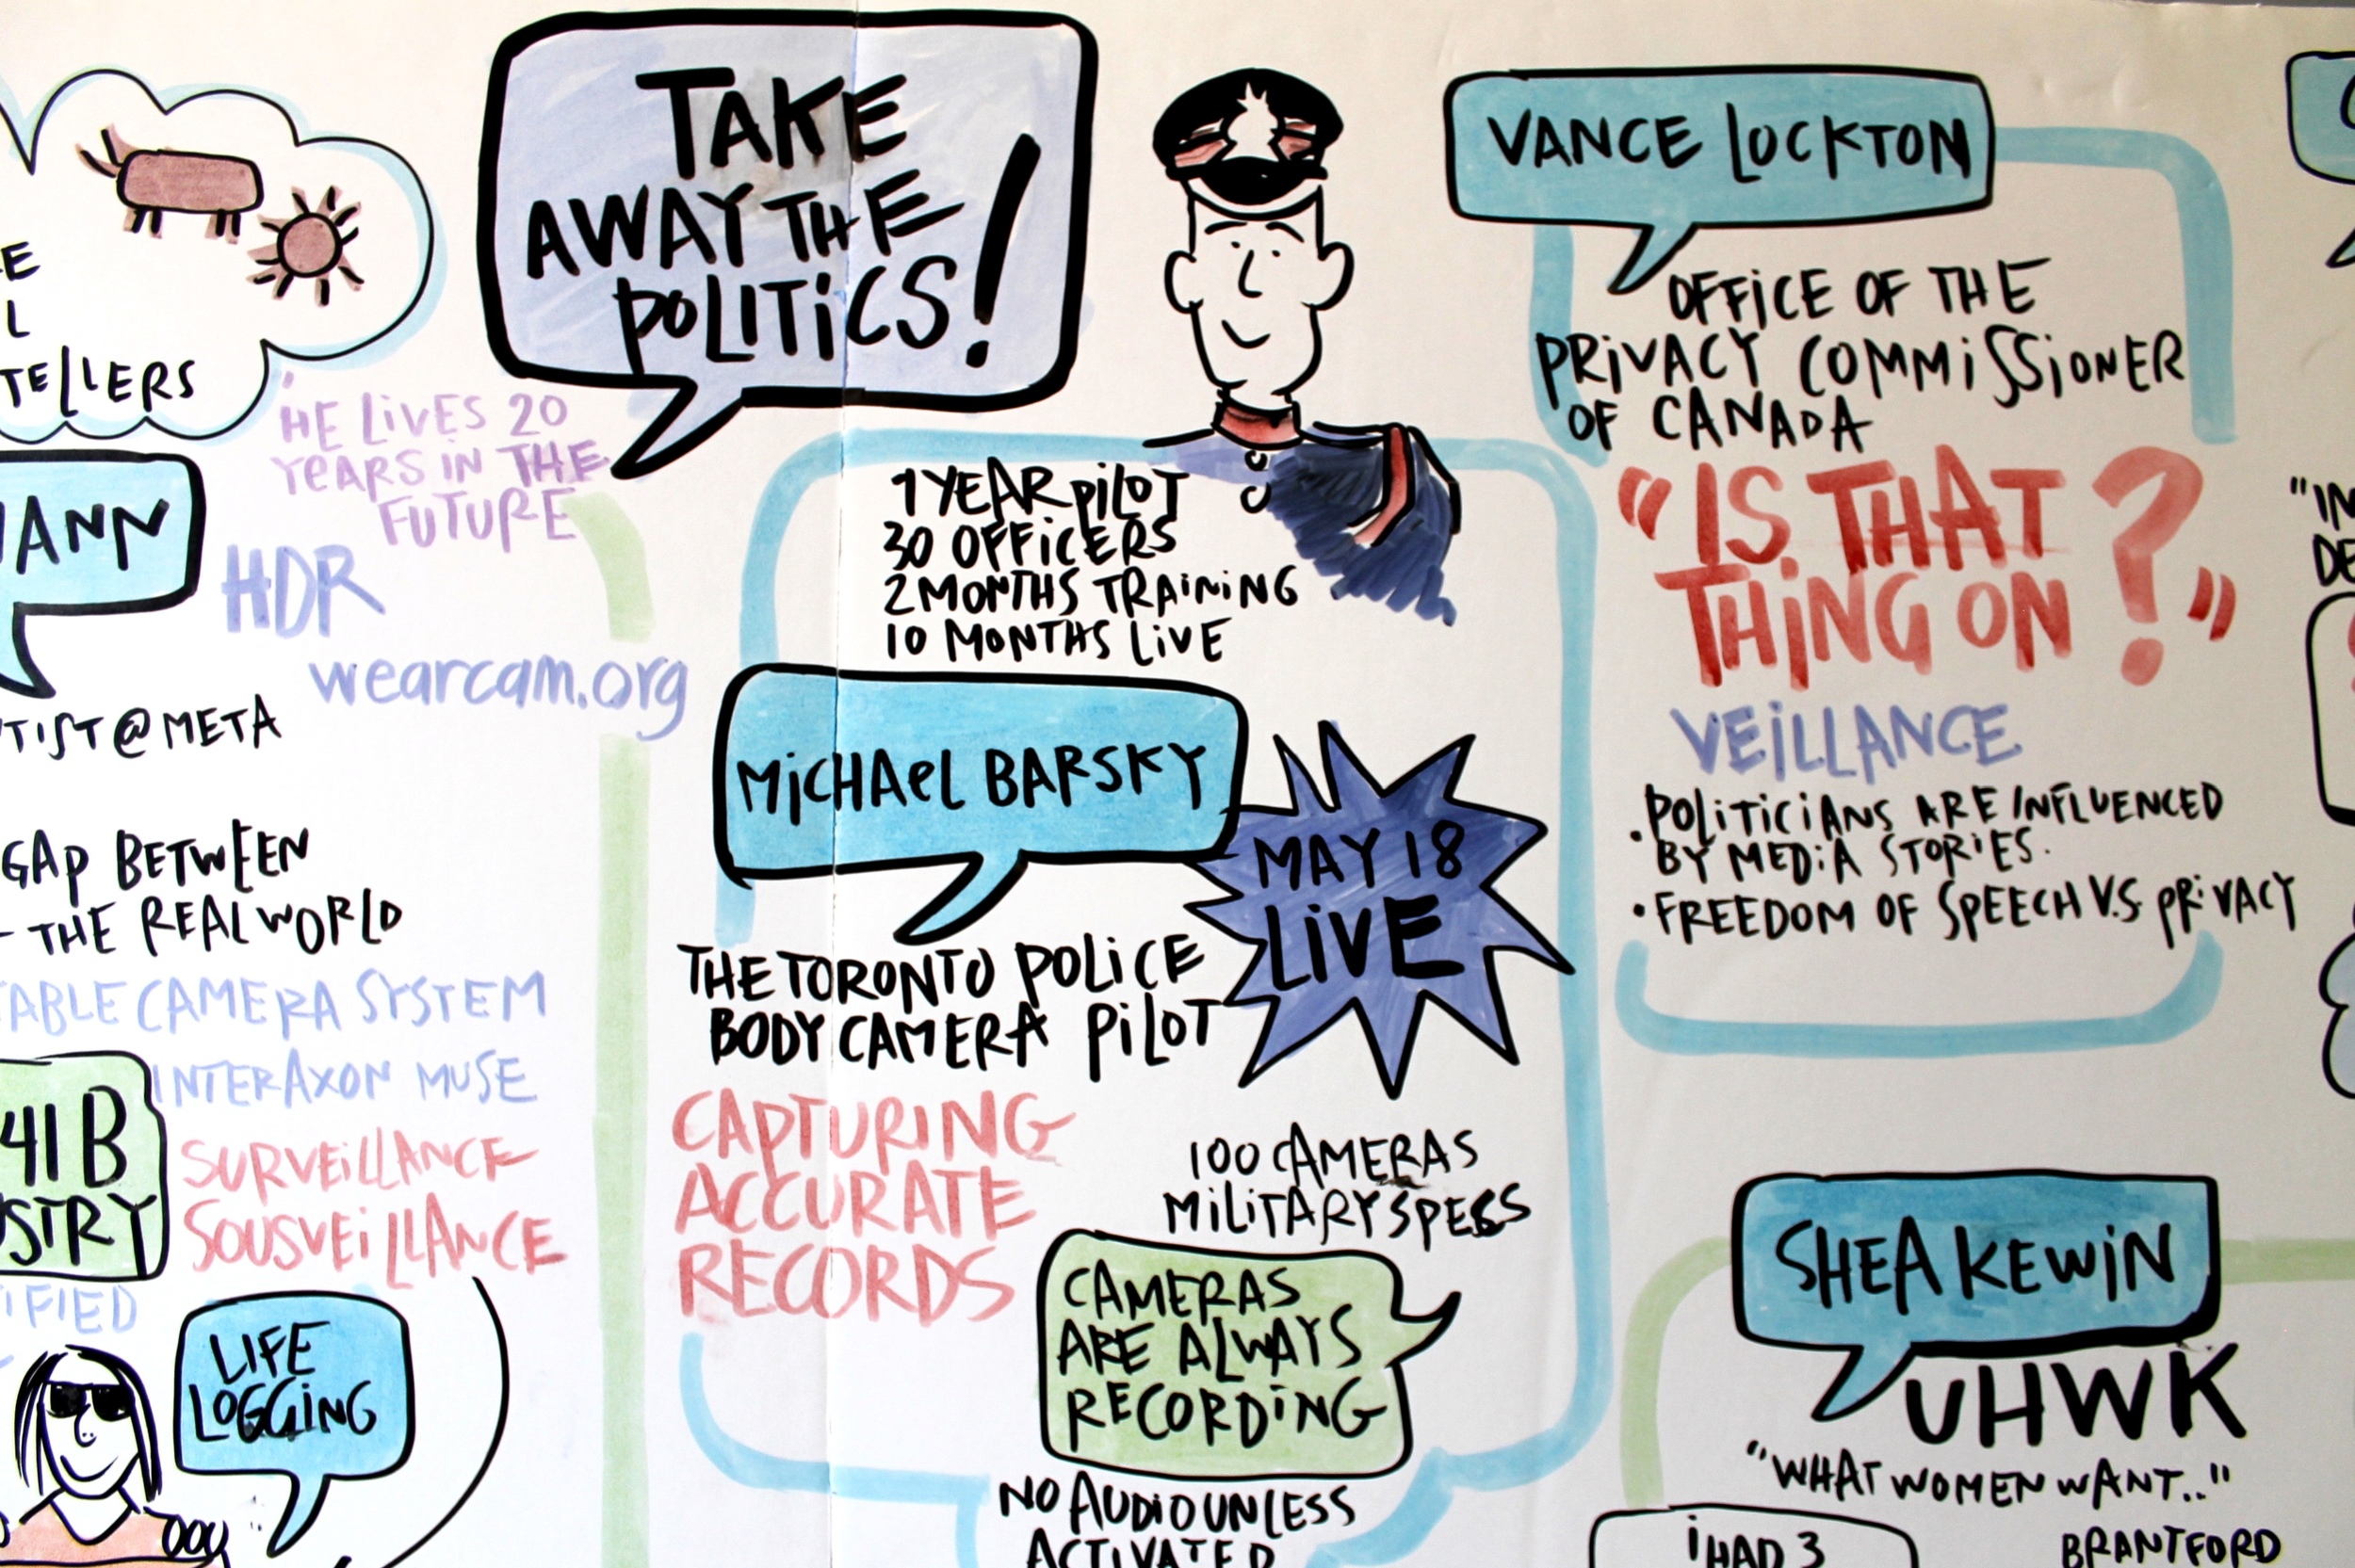 TELLERS
"HE LIVES 20
YEARS IN THE
FUTURE
HDR
wearcam.org
@ META
GAP BETWEEN
THE REAL WORLD
CAMERA SYSTEM
INTERAXON MUSE
41B
SURVEILLANCE
SOUSVEILLANCE
LIFE
LOGGING
TAKE
AWAY THE
POLITICS!
1 YEAR PILOT
30 OFFICERS
2 MONTHS TRAINING
10 MONTHS LIVE
MICHAEL BARSKY
MAY 18
LIVE
THE TORONTO POLICE
BODY CAMERA PILOT
CAPTURING
ACCURATE
RECORDS
100 CAMERAS
MILITARY SPECS
CAMERAS
ARE ALWAYS
RECORDING
NO AUDIO UNLESS
ACTIVATED
VANCE LOCKTON
OFFICE OF THE
PRIVACY COMMISSIONER
OF CANADA
"IS THAT
THING ON?"
VEILLANCE
• POLITICIANS ARE INFLUENCED
BY MEDIA STORIES.
• FREEDOM OF SPEECH V.S PRIVACY
SHEA KEWIN
UHWK
"WHAT WOMEN WANT.."
I HAD 3
BRANTFORD